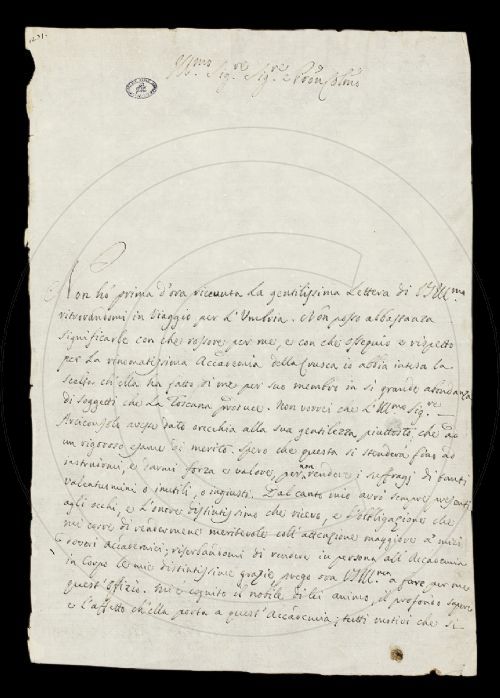 Ill.mo Sig.re Sig.re e Pron Col.mo
Non hò prima d'ora ricevuta la gentilissima Lettera di V.S.Ill.ma
ritrovandomi in viaggio per l'Umbria. Non posso abbastanza
significarle con che rossore per me, e con che ossequio e rispetto
per la rinomatissima Accademia della Crusca io abbia intesa la
scelta ch'ella ha fatto di me per suo membro in sì grande abbondanza
di soggetti che la Toscana produce. Non vorrei che l'Ill.mo Sig.re
Arciconsole avesse dato orecchia alla sua gentilezza piuttosto, che ad
un rigoroso esame di merito. Spero che questa si stenderà fino ad
instruirmi, e darmi forza e valore, per non rendere i suffragj di tanti
valentuomini o inutili, o ingiusti. Dal canto mio avrò sempre presenti
agli occhi, e l'onore distintissimo che ricevo, e l'obbligazione che
mi corre di rendermene meritevole coll'attenzione maggiore a' miei
doveri accademici; riserbandomi di rendere in persona all'Accademia
in Corpo le mie distintissime grazie, prego ora V.S.Ill.ma a fare per me
quest'offizio. Mi è cognito il nobile di lei animo, il profondo sapere
e l'affetto ch'ella porta a quest'Accademia; tutti motivi che si-